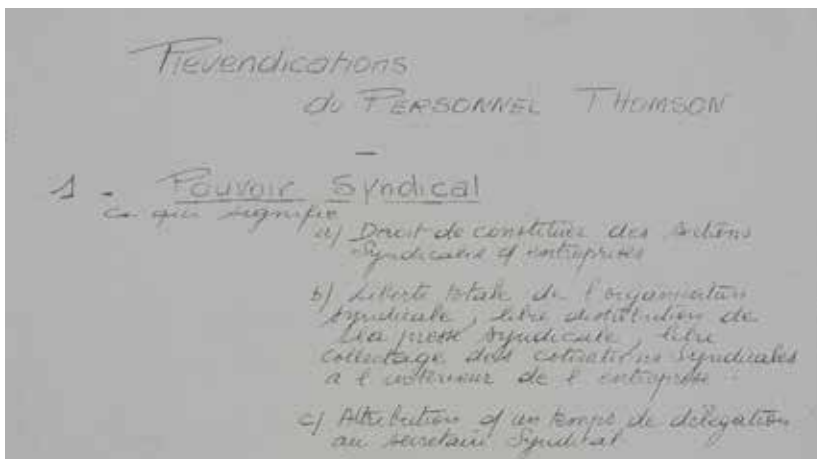 Revendications
du PERSONNEL THOMSON
1 - Pouvoir Syndical
ce qui signifie
a) Droit de constituer des sections
Syndicales d'entreprises
b) Liberté totale de l'organisation
syndicale, libre distribution de
la presse syndicale, libre
collectage des cotisations syndicales
a l'interieur de l'entreprise.
c) Attribution d'un temps de délégation
au secretaire Syndical